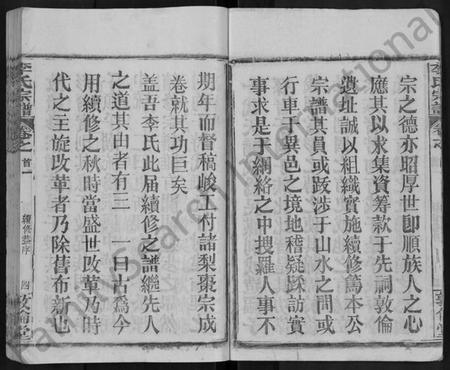 宗之德亦昭厚世即順族人之心
應其以求集資筹款于先祠敦倫
遺址誠以組織實施續修蔦本公
宗譜其員或跋涉于山水之間或
行車于異邑之境地稽疑踩訪實
事求是于網絡之中搜羅人事不
期年而督稿峻工付諸梨棗宗成
卷就其功巨矣
盖吾李氏此届續修之譜繼先人
之道其由者有三 一曰古爲今
用續修之秋時當盛世改革乃時
代之主旋改革者乃除舊布新也
李氏宗譜
卷之首一
續修恭序
四
敦倫堂
FamilySearch International